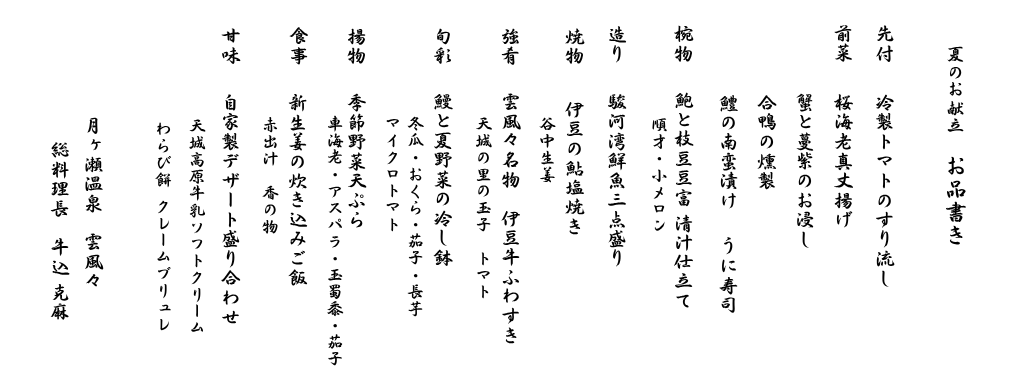 夏のお献立　お品書き
先付　冷製トマトのすり流し
前菜　桜海老真丈揚げ
蟹と蔓紫のお浸し
合鴨の燻製
鱧の南蛮漬け　うに寿司
椀物　鮑と枝豆豆富 清汁仕立て
順才・小メロン
造り　駿河湾鮮魚三点盛り
焼物　伊豆の鮎塩焼き
谷中生姜
強肴　雲風々名物　伊豆牛ふわすき
天城の里の玉子　トマト
旬彩　鰻と夏野菜の冷し鉢
冬瓜・おくら・茄子・長芋
マイクロトマト
揚物　季節野菜天ぷら
車海老・アスパラ・玉蜀黍・茄子
食事　新生姜の炊き込みご飯
赤出汁　香の物
甘味　自家製デザート盛り合わせ
天城高原牛乳ソフトクリーム
わらび餅　クレームブリュレ
月ヶ瀬温泉　雲風々
総料理長　牛込 克麻